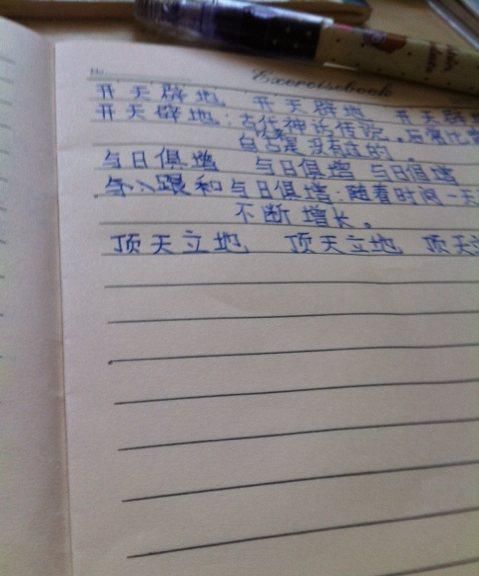 No.
Exercisebook
开天辟地 开天辟地 开天辟
开天辟地:古代神话传说。后常比
自古是没有过的。
与日俱增 与日俱增 与日俱增
与:跟和与日俱增:随着时间一天
不断增长。
顶天立地 顶天立地 顶天